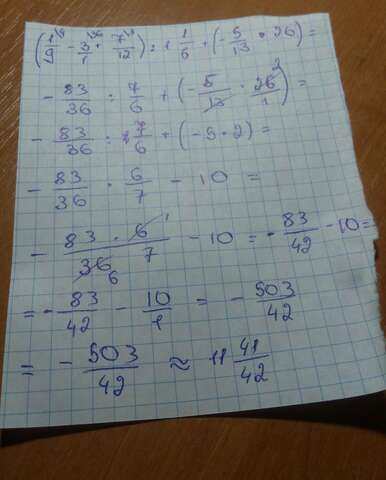 (1/9 - 3/1 + 7/12) : 1 1/6 + (- 5/13 · 26) =
- 83/36 : 7/6 + (- 5/13 · 26/1) =
- 83/36 : 7/6 + (-5 · 2) =
- 83/36 · 6/7 - 10 =
- 83 · 6/36 · 7 - 10 = - 83/42 - 10 =
= - 83/42 - 10/1 = - 503/42
= - 503/42 ≈ 11 41/42